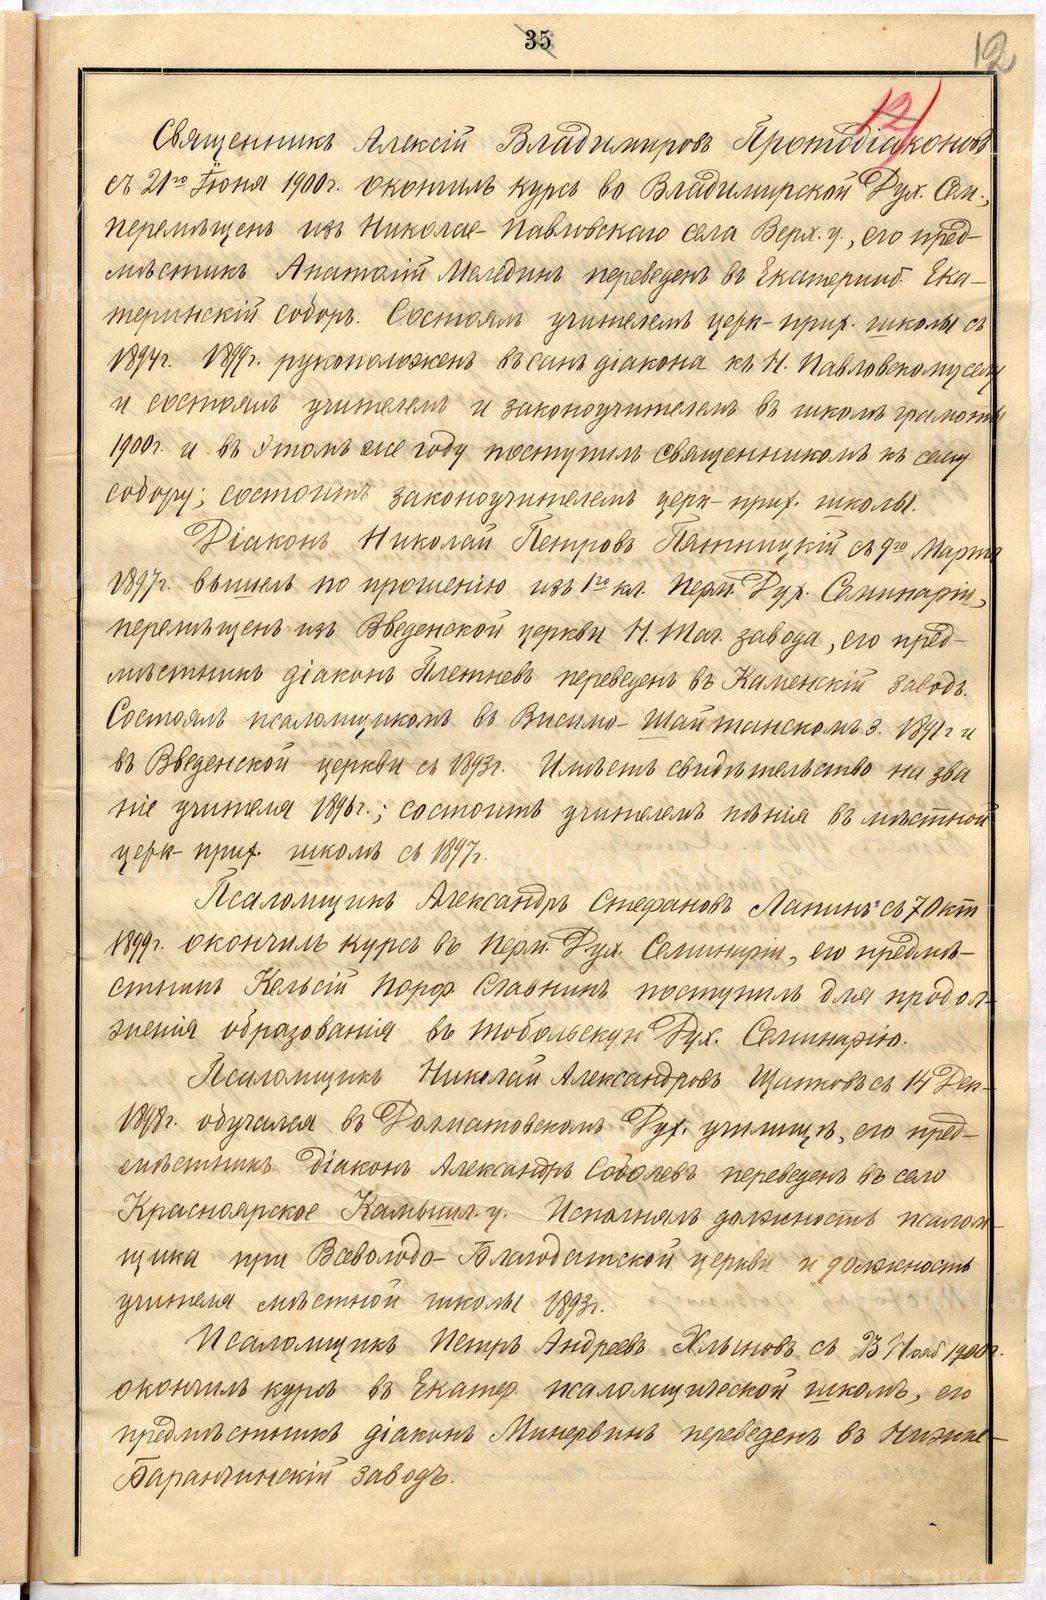 35
12
12)
Священникъ Алексій Владимировъ Протодіаконовъ
съ 21го Іюня 1900г. окончилъ курсъ во Владимирской Дух. Сем.,
перемѣщенъ изъ Николае-Павловскаго села Верх. у., его пред-
мѣстникъ Анатолій Меледин переведенъ въ Екатеринб. Ека-
теринскій соборъ. Состоялъ учителемъ церк-прих. школы съ
1894г. 1899г. рукоположенъ въ санъ діакона къ Н. Павловскому селу
и состоялъ учителемъ и законоучителемъ въ школѣ грамоты
1900г. и въ этомъ же году поступилъ священникомъ къ сему
собору; состоитъ законоучителемъ церк-прих. школы.
Діаконъ Николай Петровъ Пятницкій съ 9го Марта
1897г. вышелъ по прошенію изъ 1го кл. Перм. Дух. Семинаріи,
перемѣщенъ изъ Введенской церкви Н. Таг. завода, его пред-
мѣстникъ діаконъ Плетневъ переведенъ въ Каменскій заводъ.
Состоялъ псаломщикомъ въ Висимо-Шайтанскомъ з. 1891г и
въ Введенской церкви съ 1893г. Имѣетъ свидѣтельство на зва
ніе учителя 1896г.; состоитъ учителемъ пѣнія въ мѣстной
церк-прих. школѣ съ 1897г.
Псаломщикъ Александръ Стефановъ Лапинъ съ 7 Окт
1899г. окончилъ курсъ въ Перм. Дух. Семинаріи, его предмѣ-
стникъ Кельсій Порф Славнинъ поступилъ для продол-
женія образованія въ Тобольскую Дух. Семинарію.
Псаломщикъ Николай Александровъ Щипковъ съ 14 Дек-
1898г. обучался въ Долматовскомъ Дух. училищѣ, его пред-
мѣстникъ діаконъ Александръ Соболевъ переведенъ въ село
Красноярское Камышл. у. Исполнялъ должность псалом-
щика при Всеволодо-Благодатской церкви и должность
учителя мѣстной школы 1893г.
Псаломщикъ Петръ Андреевъ Хлыновъ съ 23 Нояб 1900г.
окончилъ курсъ въ Екатер. псаломщической школѣ, его
предмѣстникъ діаконъ Минервинъ переведенъ въ Нижне-
Баранчинскій заводъ.